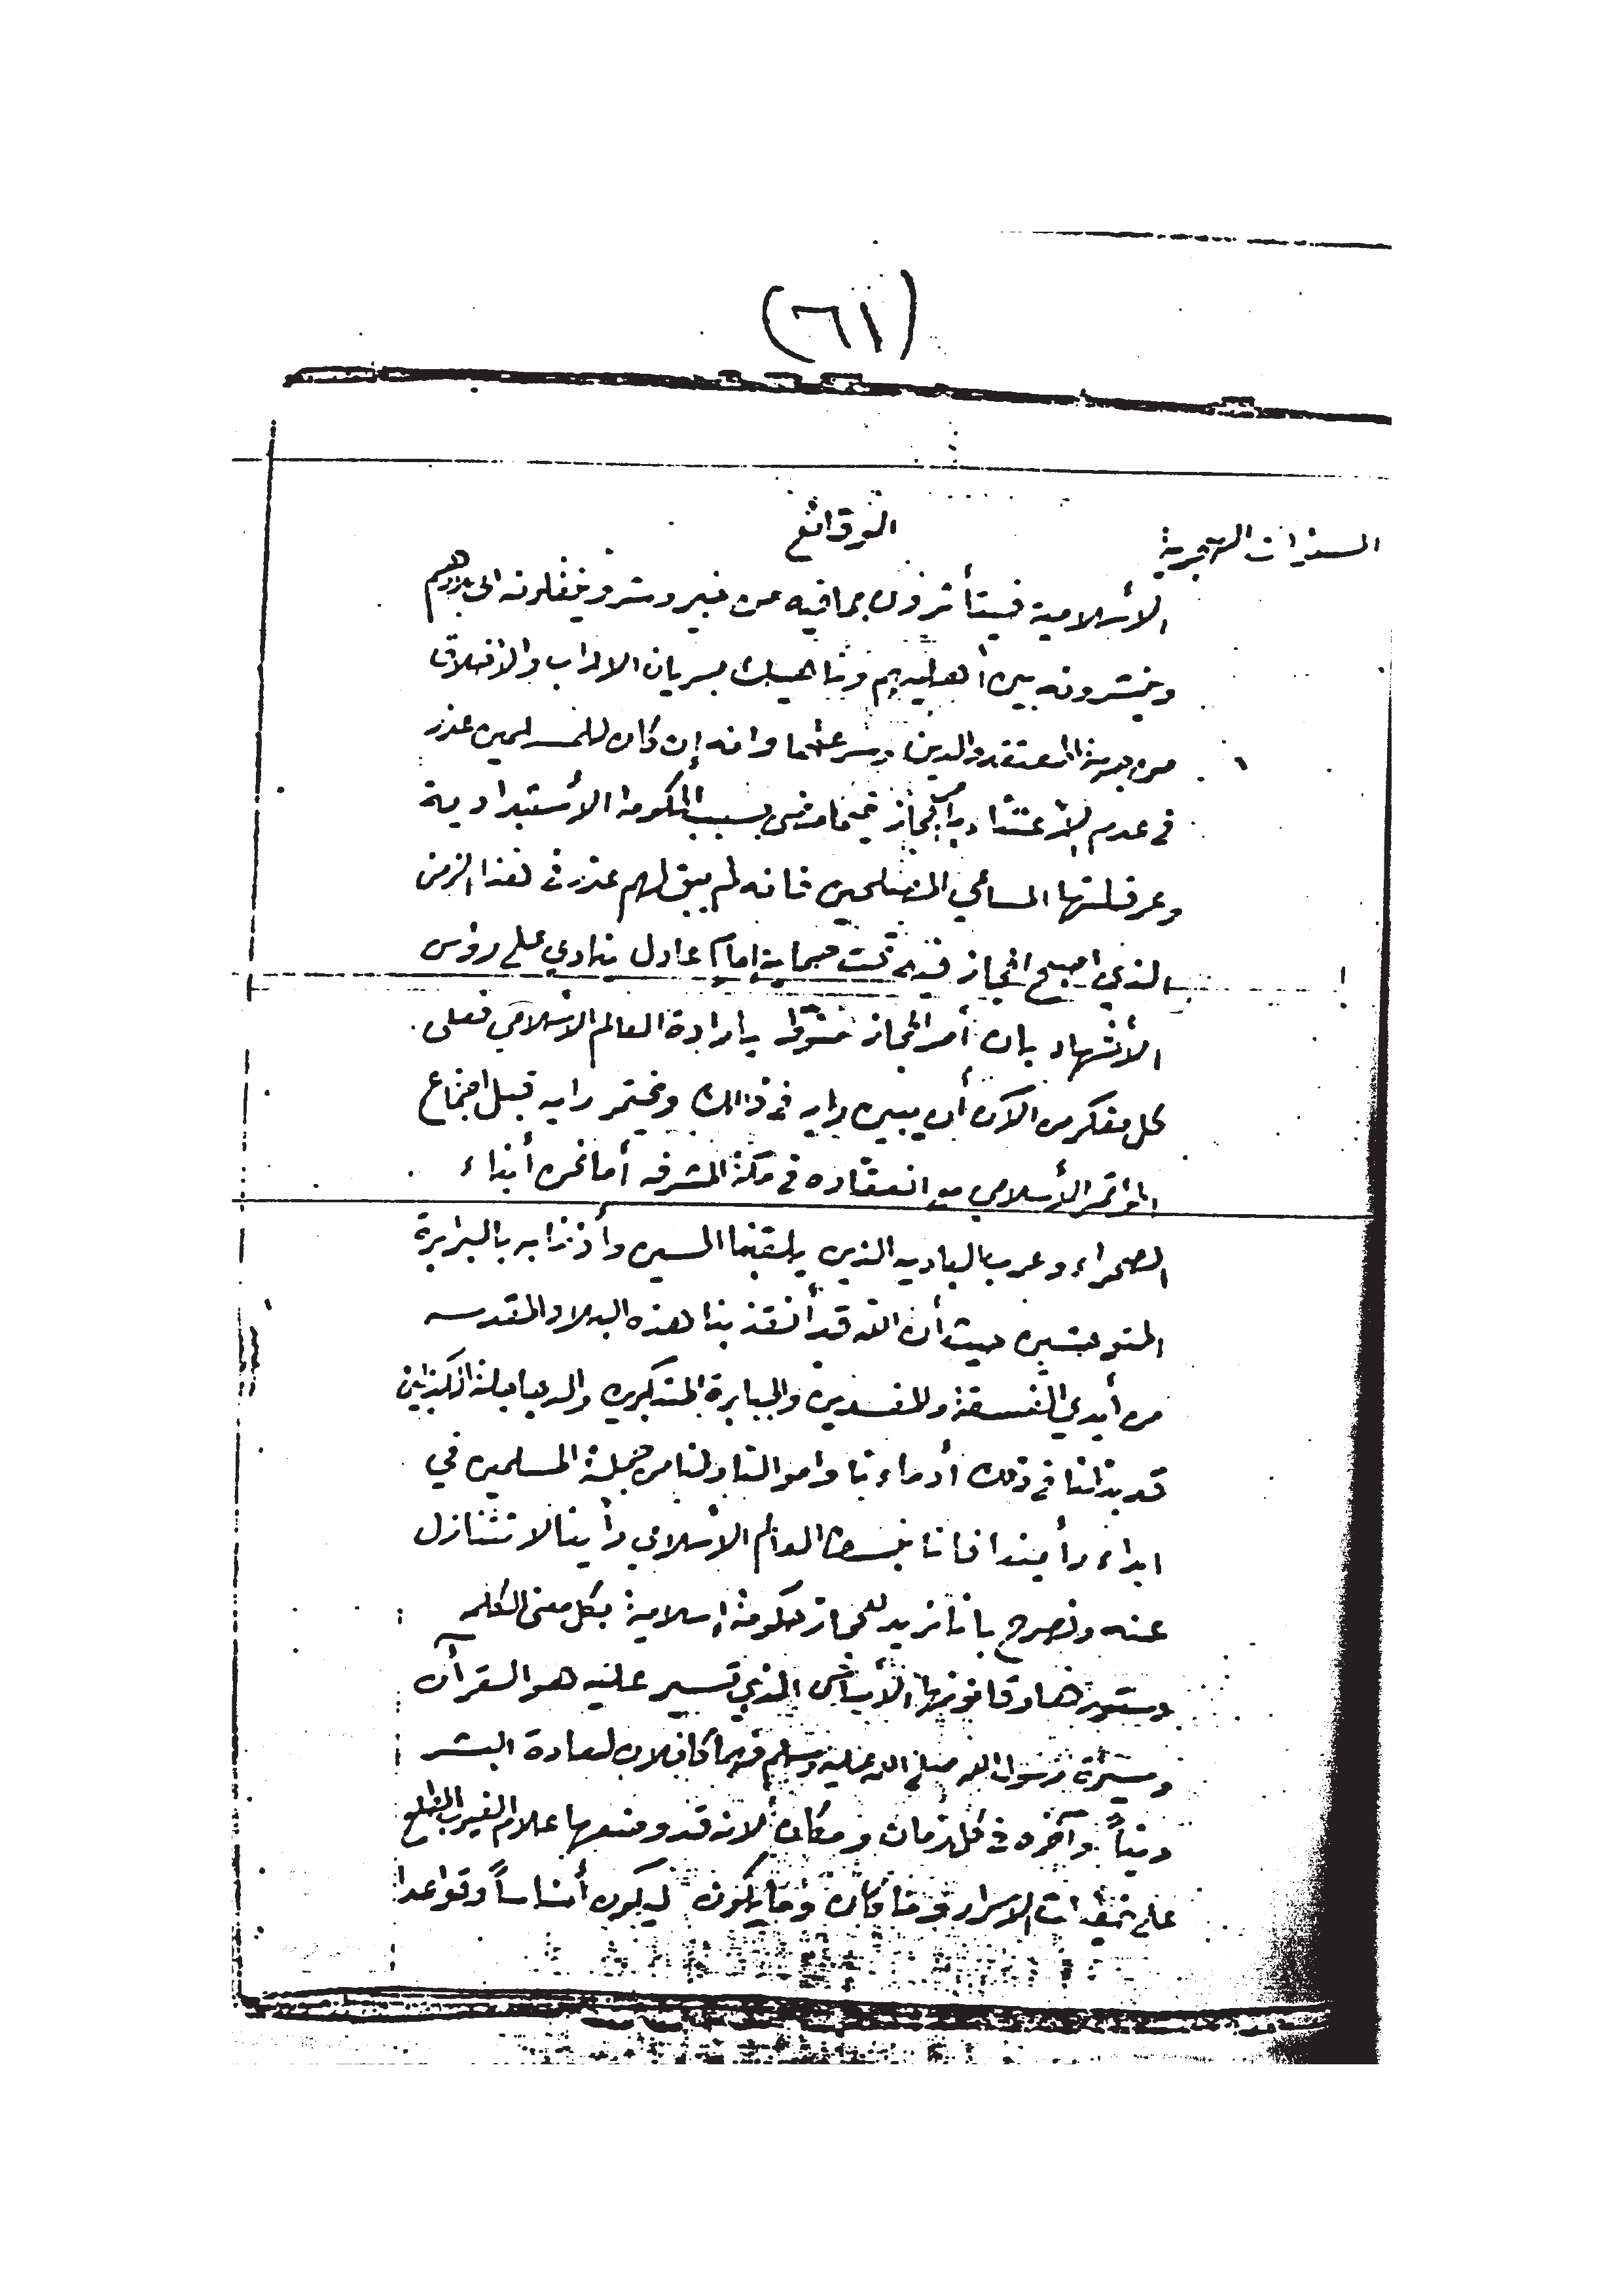 (٦١)
السنوات الهجرية
الوقائع
الأسلامية فيتأثرون بمافيه من خير وشر وينقلونه الى بلادهم
وينشرونه بين أهليهم وناهيك بسريان الاداب والاخلاق
من جهة المعتقد والدين وسرعتها وانه إن كان للمسلمين عذر
في عدم الأعتناء بأمر الحجاز فيما مضى بسبب الحكومة الأستبدادية
وعرقلتها المساعي المصلحين فانه لم يبق لهم عذر في هذا الزمن
الذي اصبح الحجاز فيه تحت حماية إمام عادل ينادي على رؤس
الأشهاد بان أمر الحجاز منوط بارادة العالم الأسلامي فعلى
كل مفكر من الآن أن يبين رايه في ذالك ويختمر رايه قبل اجتماع
المؤتمر الأسلامي انعقاده في مكة المشرفه أما نحن أبناء
الصحراء وعرب الباديه الذين يلقبنا الحسين وأذنابه بالبرابرة
المتوحشين حيث أن الله قد أنقذ بنا هذه البلاد المقدسه
من أيدي الفسقة والمفسدين والجبابرة المتكبرين والدجاجلة الكذابين
قد بذلنا في ذلك أدماءنا واموالنا ولنا من جملة المسلمين في
ابداء رأينا فاننا للعالم الأسلامي رأينا لا نتنازل
عنه ونصرح باننا نريد للحجاز حكومة إسلامية بكل معنى الكلمه
دستورها وقانونها الأساسي الذي تسير عليه هو القرآن
وسيرة رسول الله صلى الله عليه وسلم فهما كافلان لسعادة البشر
ديناً وآخره في كل زمان ومكان لانه قد وضعها علام الغيوب المطلع
على خفيات الاسرار وما كان وما يكون ليكون أساساً وقواعدا